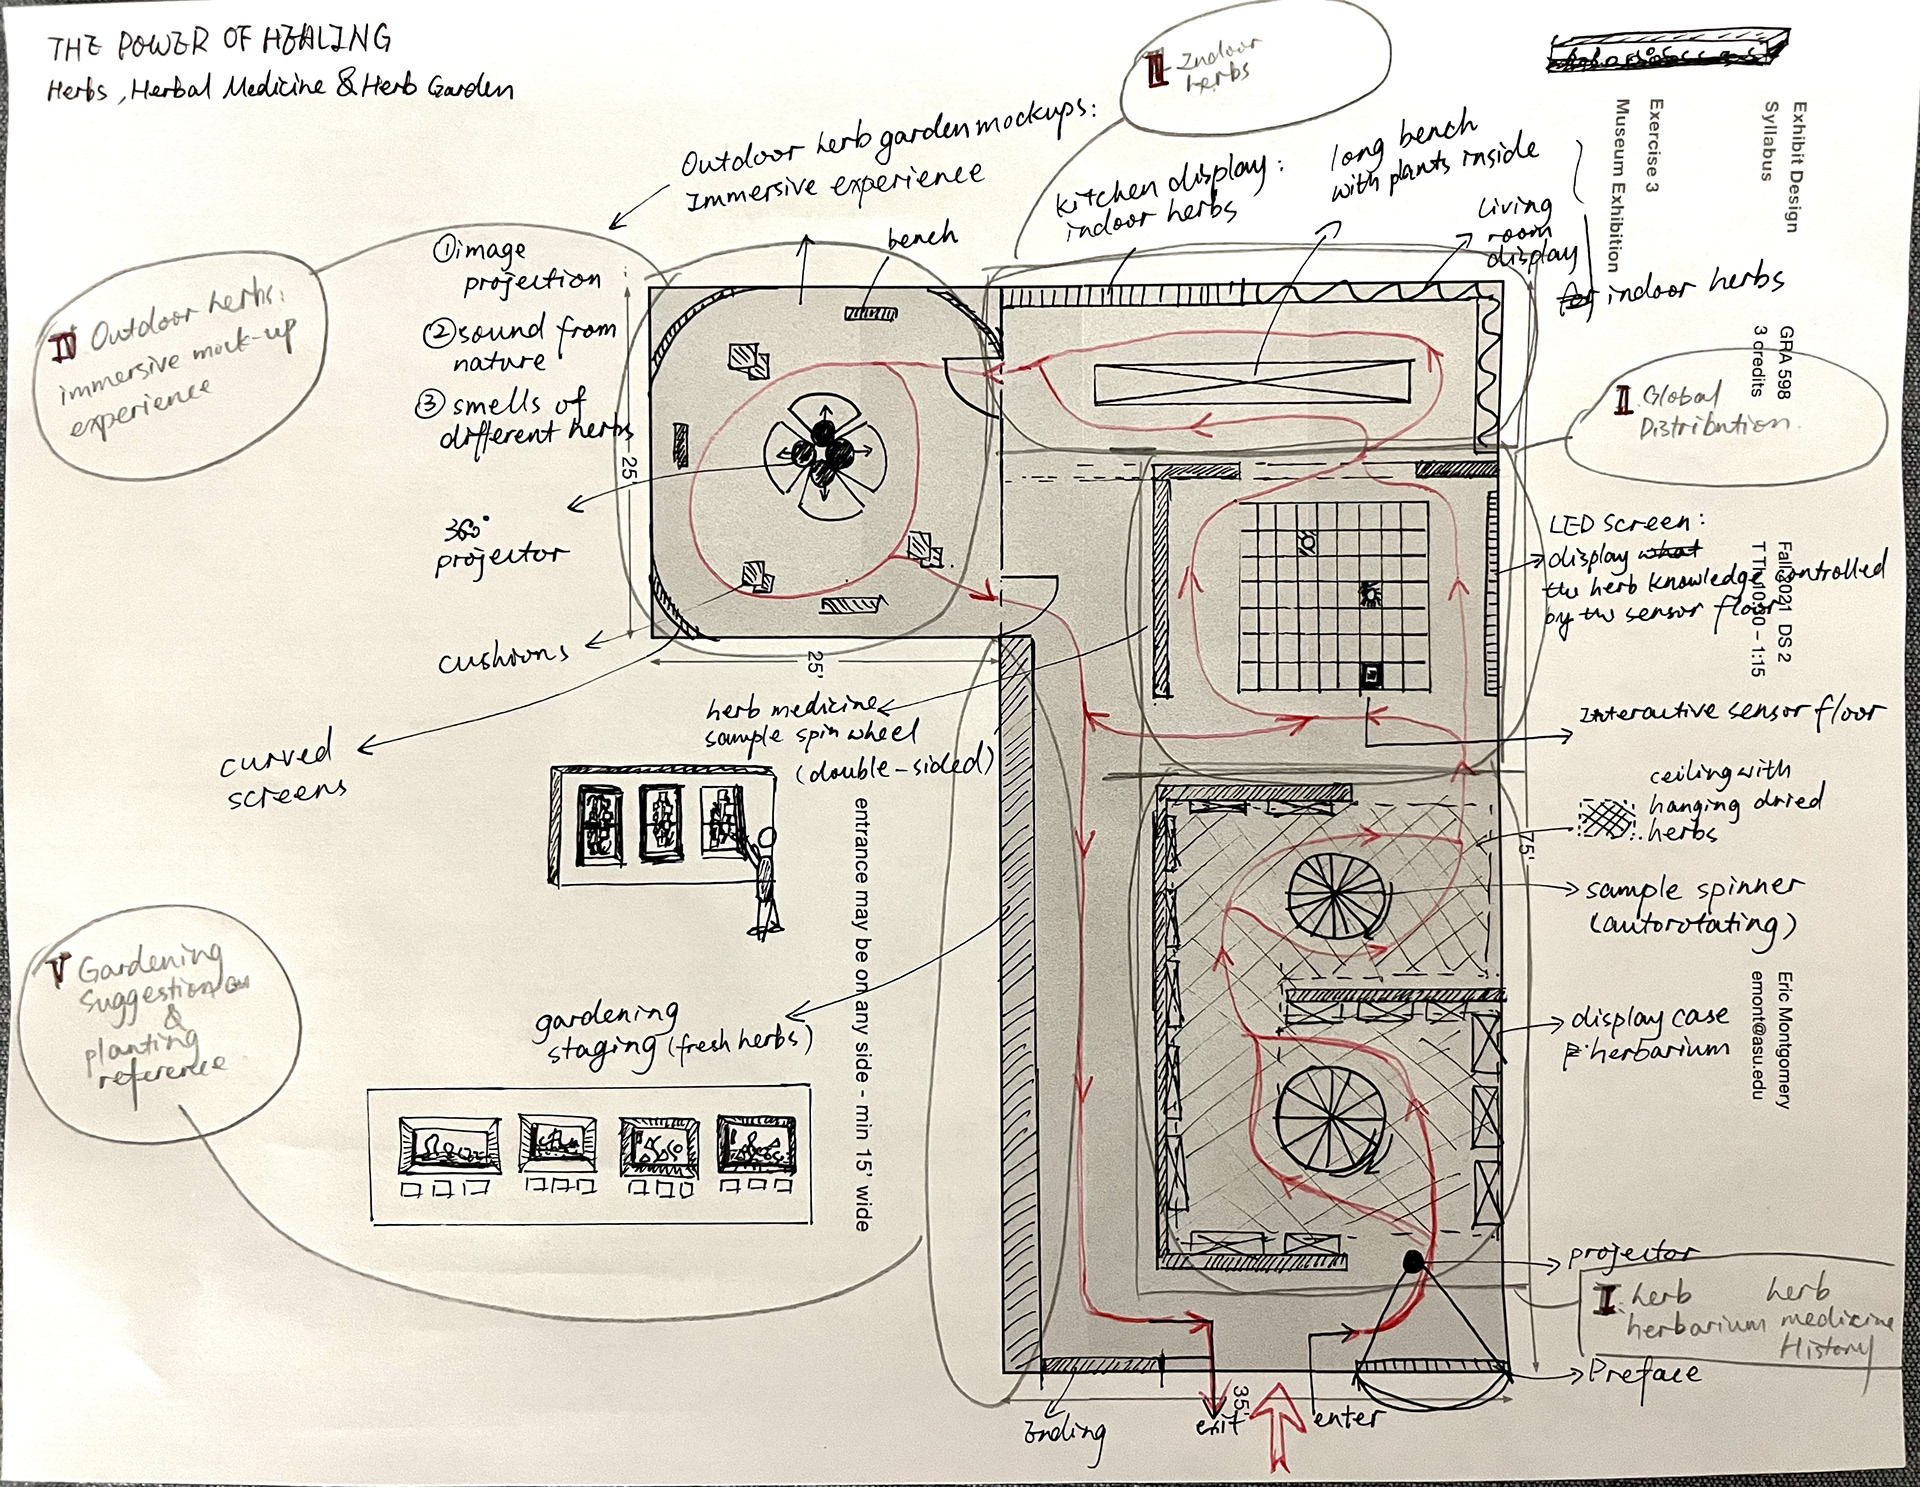 THE POWER OF HEALING
Herbs, Herbal Medicine & Herb Garden
II Indoor
herbs
Outdoor herb garden mockups:
Immersive experience
kitchen display:
indoor herbs
long bench
with plants inside
living
room
display
for indoor herbs
bench
① image
projection
② sound from
nature
③ smells of
different herbs
IV Outdoor herbs:
immersive mock-up
experience
II Global
Distribution.
360°
projector
25'
25'
cushions
curved
screens
LED screen:
display what
the herb knowledge controlled
by the sensor floor
herb medicine
sample spin wheel
(double-sided)
Interactive sensor floor
ceiling with
hanging dried
herbs
75'
sample spinner
(autorotating)
display case
herbarium
V Gardening
Suggestion
&
planting
reference
gardening
staging (fresh herbs)
entrance may be on any side - min 15' wide
projector
I. herb
herbarium
herb
medicine
History
Preface
Ending
exit
35'
enter
Exhibit Design
Syllabus
Exercise 3
Museum Exhibition
GRA 598
3 credits
Fall 2021 DS 2
T Th 10:30 – 1:15
Eric Montgomery
emont@asu.edu